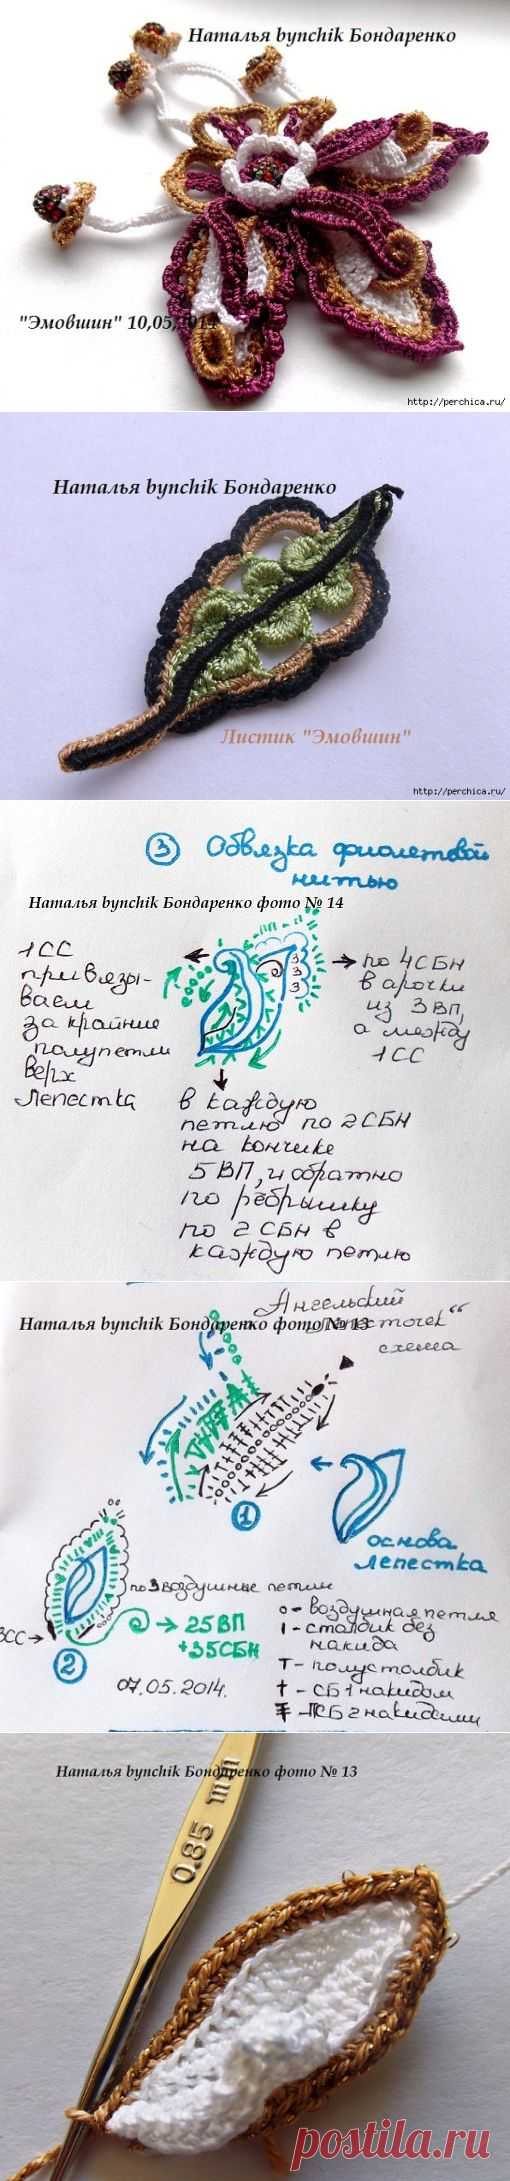 Наталья bynchik Бондаренко
"Эмовшин" 10,05,2014
http://perchica.ru/
Наталья bynchik Бондаренко
Листик "Эмовшин"
http://perchica.ru/
3 Обвязка фиолетовой
нитью
Наталья bynchik Бондаренко фото № 14
1 СС
привязы-
ваем
за крайние
полупетли
верх
лепестка
по 4 СБН
в арочки
из 3 ВП,
а между
1 СС
3
3
3
в каждую
петлю по 2 СБН
на кончике
5 ВП, и обратно
по рёбрышку
по 2 СБН в
каждую петлю
"Ангельский
Наталья bynchik Бондаренко фото № 13
лепесточек"
схема
1
основа
лепестка
по 3 воздушные петли
3СС
25 ВП
+35 СБН
2
07.05.2014.
о - воздушная петля
ı - столбик без
накида
т - полустолбик
† - СБ 1 накидом
СБ 2 накидами
Наталья bynchik Бондаренко фото № 13
0.85 mm
postila.ru